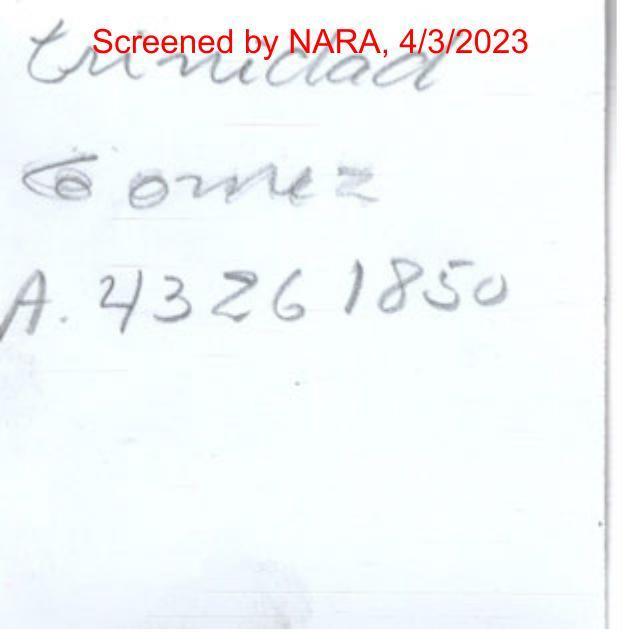 Screened by NARA, 4/3/2023
trinidad
Gomez
A. 43261850